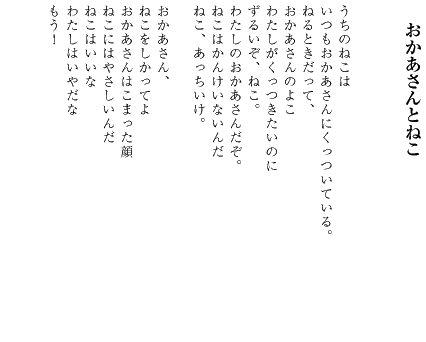 おかあさんとねこ
うちのねこは
いつもおかあさんにくっついている。
ねるときだって、
おかあさんのよこ
わたしがくっつきたいのに
ずるいぞ、ねこ。
わたしのおかあさんだぞ。
ねこはかんけいないんだ
ねこ、あっちいけ。
おかあさん、
ねこをしかってよ
おかあさんはこまった顔
ねこにはやさしいんだ
ねこはいいな
わたしはいやだな
もう！